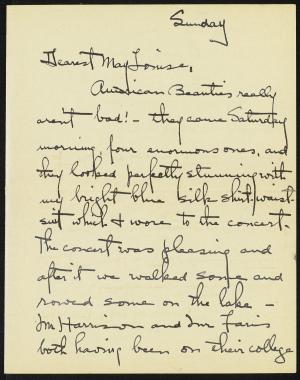 Sunday
Dearest May Louise,
American Beauties really
aren't bad! - they came Saturday
morning, four enormous ones, and
they looked perfectly stunning with
my bright blue silk shirt waist-
suit which I wore to the concert.
The concert was pleasing and
after it we walked some and
rowed some on the lake -
Mr Harrison and Mr Faris
both having been on their college